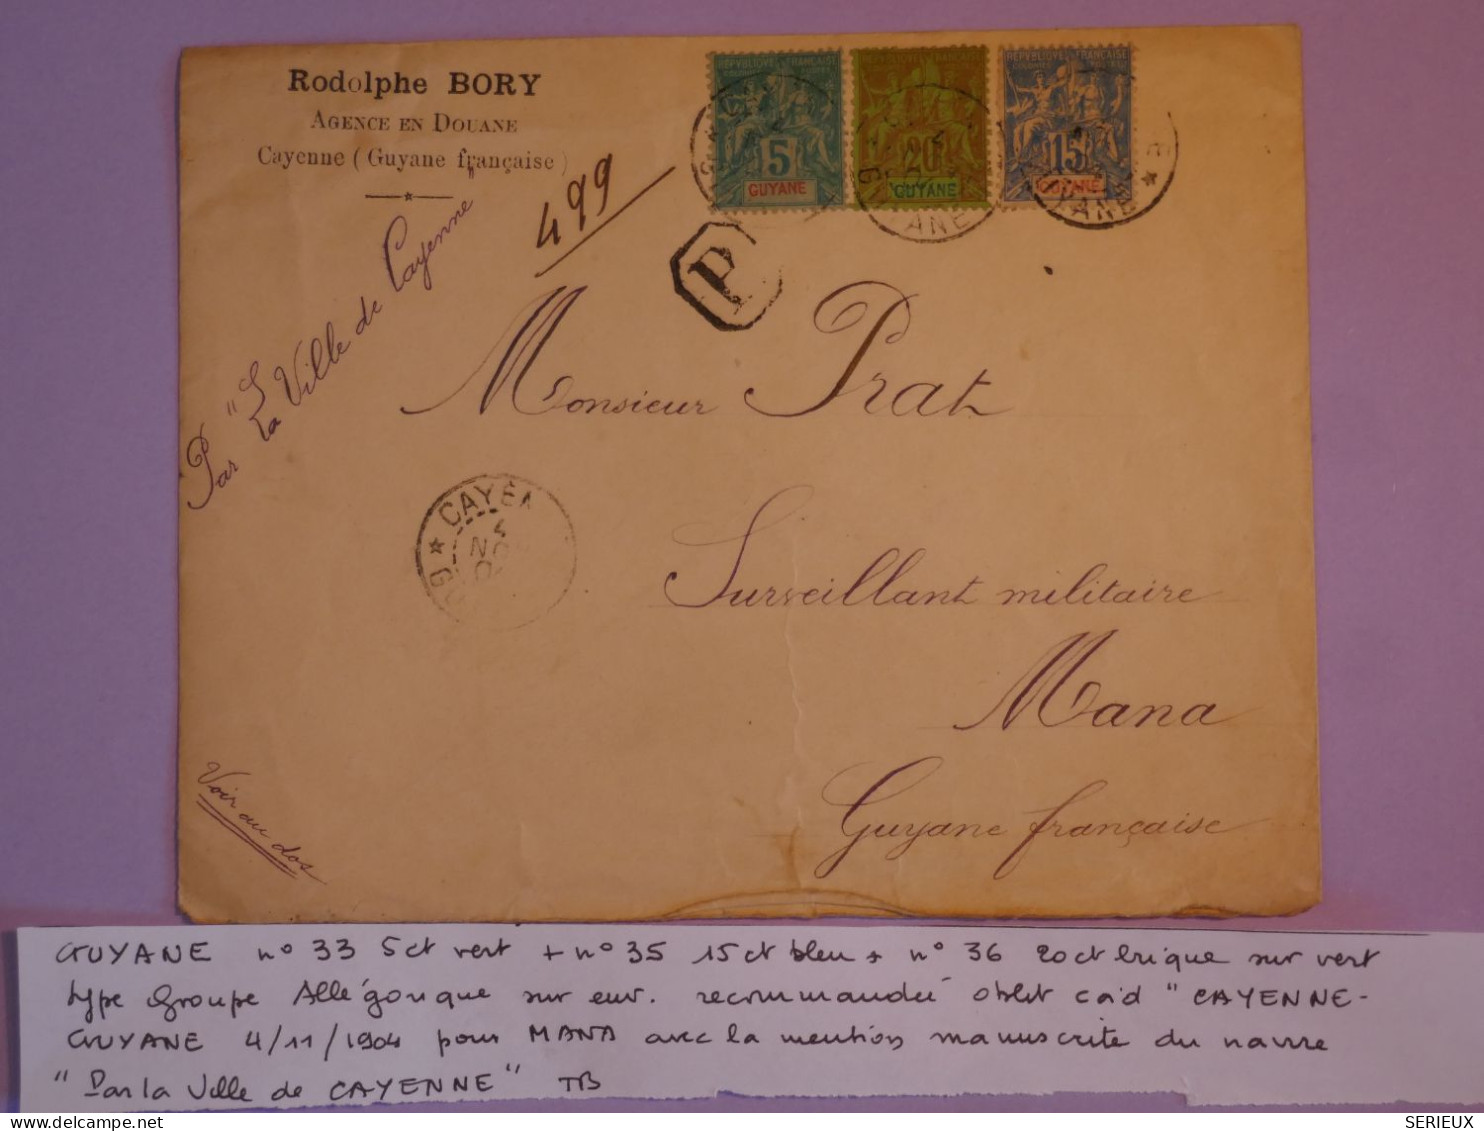 Rodolphe BORY
AGENCE EN DOUANE
Cayenne (Guyane française)
499
Par "La Ville de Cayenne"
REPUBLIQUE FRANÇAISE
5
GUYANE
20
GUYANE
REPUBLIQUE FRANÇAISE
15
GUYANE
R
Monsieur Prat
CAYEN
4
NO
Surveillant militaire
Mana
Guyane française
Voir au dos
GUYANE n° 33 5ct vert + n° 35 15ct bleu + n° 36 20ct brique sur vert
type Groupe Allégorique sur env. recommandée oblit cad "CAYENNE-
GUYANE 4/11/1904 pour MANA avec la mention manuscrite du navire
"Par la Ville de CAYENNE" TB
SERIEUX